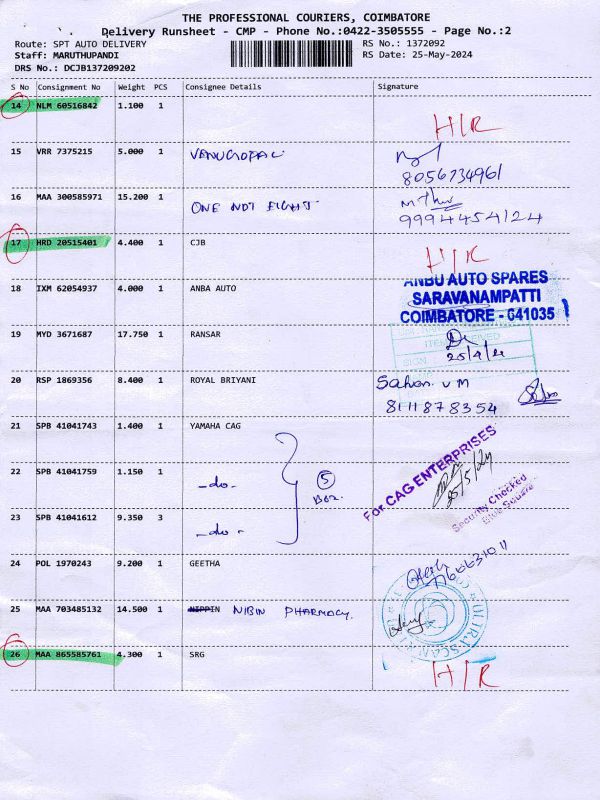 THE PROFESSIONAL COURIERS, COIMBATORE
Delivery Runsheet - CMP - Phone No.:0422-3505555 - Page No.:2
Route: SPT AUTO DELIVERY
RS No.: 1372092
Staff: MARUTHUPANDI
RS Date: 25-May-2024
DRS No.: DCJB137209202
S No Consignment No Weight PCS Consignee Details Signature
14 NLM 60516842 1.100 1 H/R
15 VRR 7375215 5.000 1 VANUGOPAL
8056734961
16 MAA 300585971 15.200 1 ONE NOT EIGHT
9994454124
17 HRD 20515401 4.400 1 CJB H/R
18 IXM 62054937 4.000 1 ANBA AUTO
ANBU AUTO SPARES
SARAVANAMPATTI
COIMBATORE - 641035
19 MYD 3671687 17.750 1 RANSAR
20 RSP 1869356 8.400 1 ROYAL BRIYANI
8111878354
21 SPB 41041743 1.400 1 YAMAHA CAG
For CAG ENTERPRISES
22 SPB 41041759 1.150 1 -do- 5 Box
25/5/24
Security Checked
23 SPB 41041612 9.350 3 -do-
24 POL 1970243 9.200 1 GEETHA
25 MAA 703485132 14.500 1 NIPPIN NIBIN PHARMACY
26 MAA 865585761 4.300 1 SRG H/R